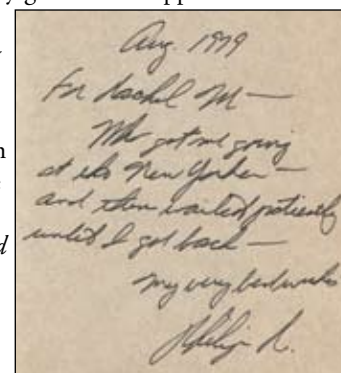 Aug. 1979
For Rachel M—
Who got me going
at the New Yorker—
and then waited patiently
until I got back—
My very best wishes
Philip R.